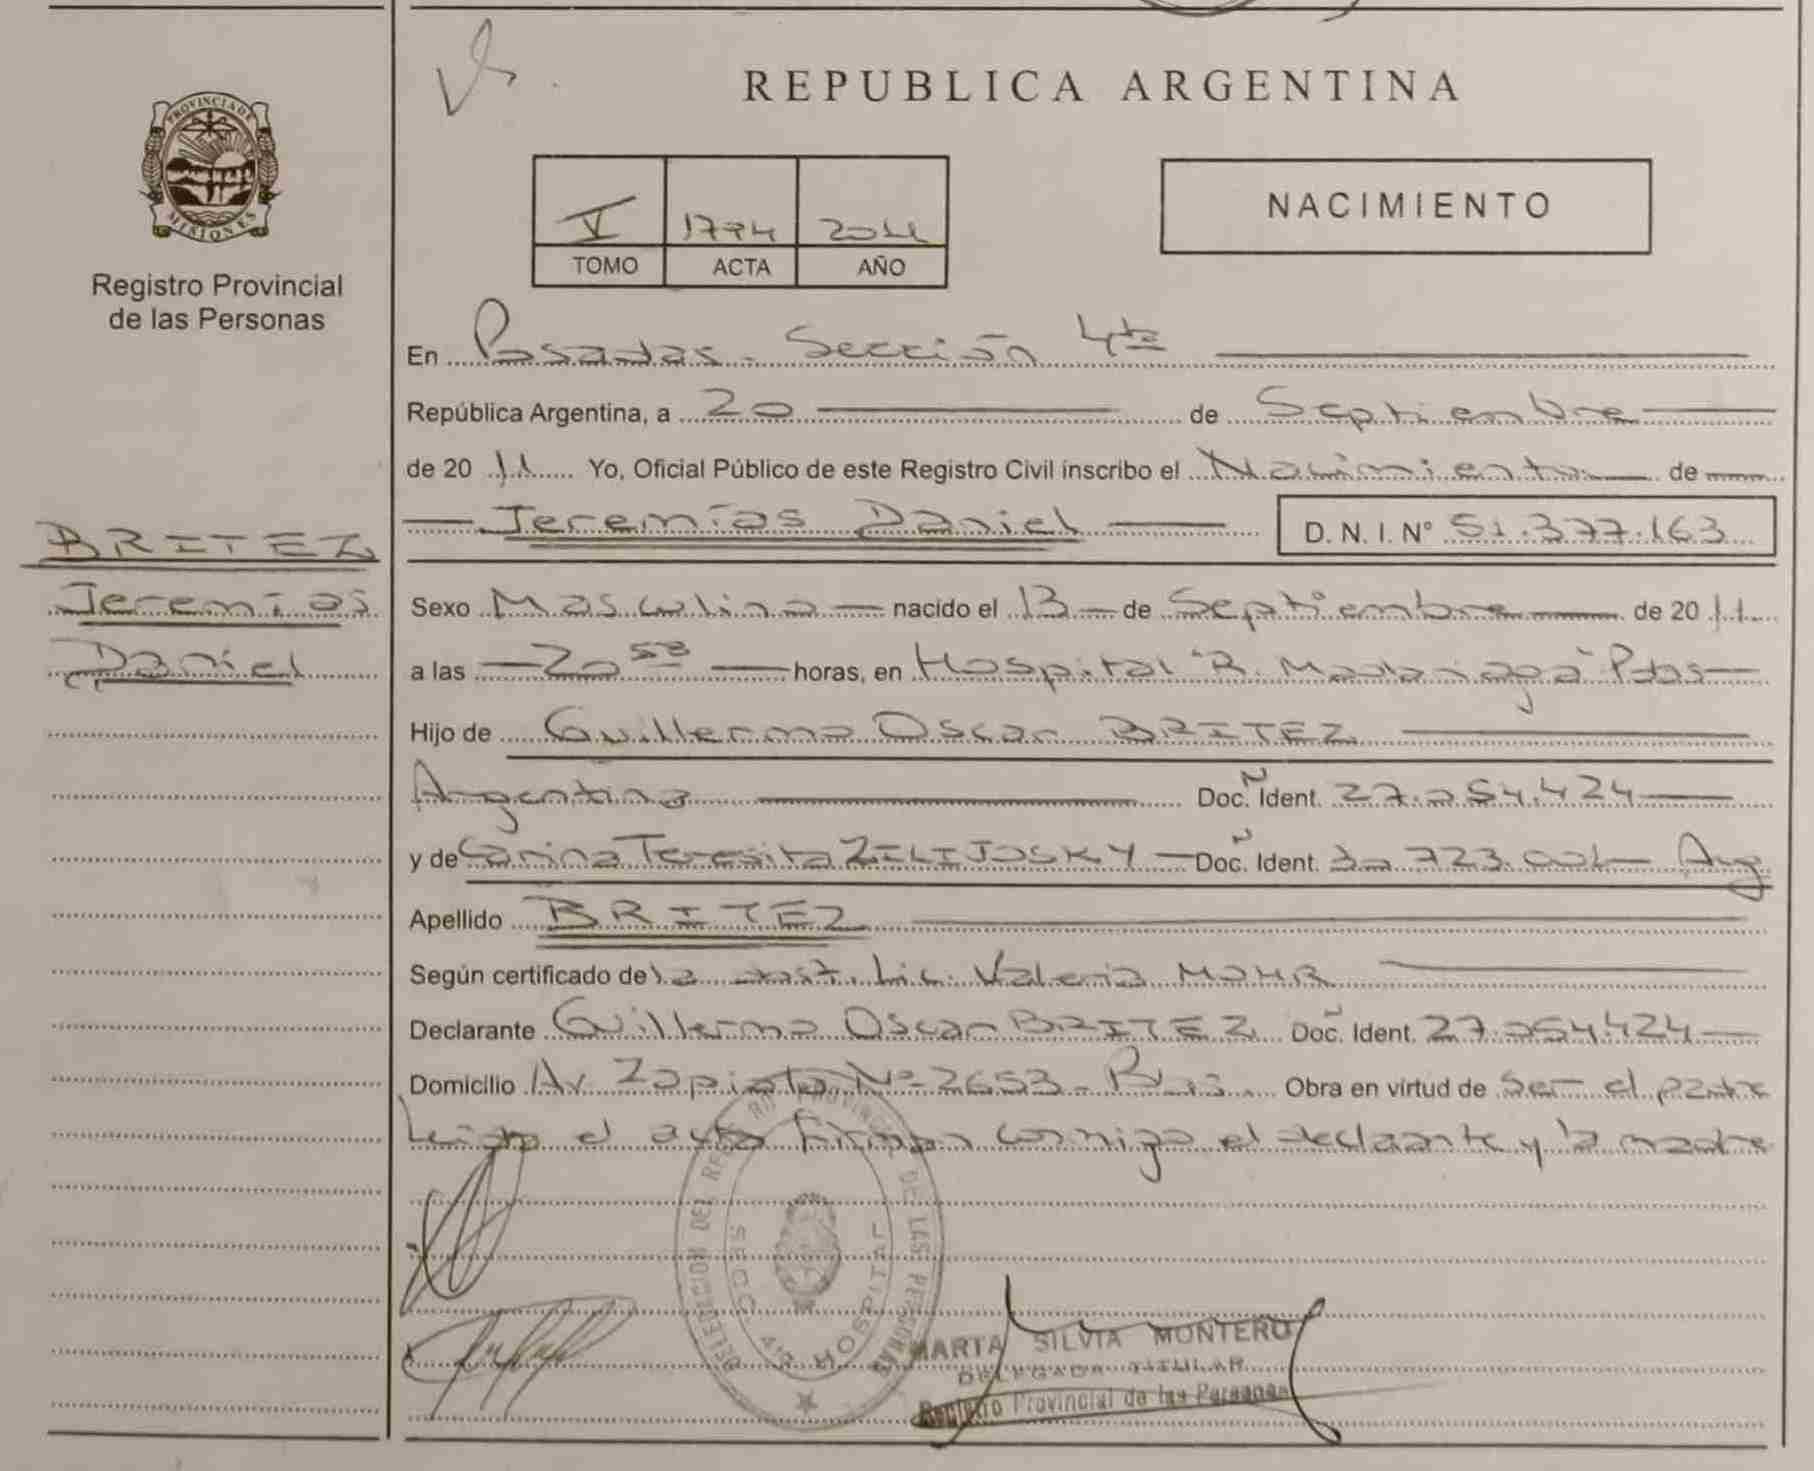 REPUBLICA ARGENTINA
PROVINCIA DE
MISIONES
Registro Provincial
de las Personas
V 1794 2011
TOMO ACTA AÑO
NACIMIENTO
En Posadas - Sección 4ta
República Argentina, a 20 de Septiembre
de 2011 Yo, Oficial Público de este Registro Civil inscribo el Nacimiento de
Jeremías Daniel D. N. I. N° 51.377.163
BRITEZ
Jeremías
Daniel
Sexo Masculino nacido el 13 de Septiembre de 2011
a las 20 53 horas, en Hospital "R. Madariaga" Pdas
Hijo de Guillermo Oscar BRITEZ
Argentino Doc. Ident. 27.054.424
y de Carina Teresita ZILIJOSKY Doc. Ident. 30.723.001 Arg
Apellido BRITEZ
Según certificado de la obst. Lic. Valeria MOHR
Declarante Guillermo Oscar BRITEZ Doc. Ident. 27.054.424
Domicilio Av. Zapiola Nº 2653 - Pdas. Obra en virtud de ser el padre
Leída el acta firman conmigo el declarante y la madre
DELEGACION DEL REGISTRO PROVINCIAL DE LAS PERSONAS
SECC. 4ta HOSPITAL
MARTA SILVIA MONTERO
DELEGADA TITULAR
Registro Provincial de las Personas